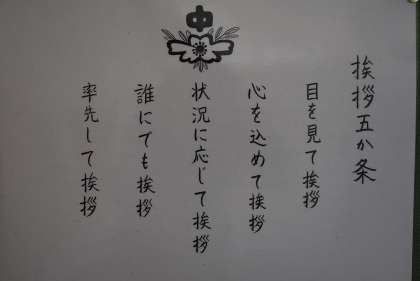 中
挨拶五か条
目を見て挨拶
心を込めて挨拶
状況に応じて挨拶
誰にでも挨拶
率先して挨拶